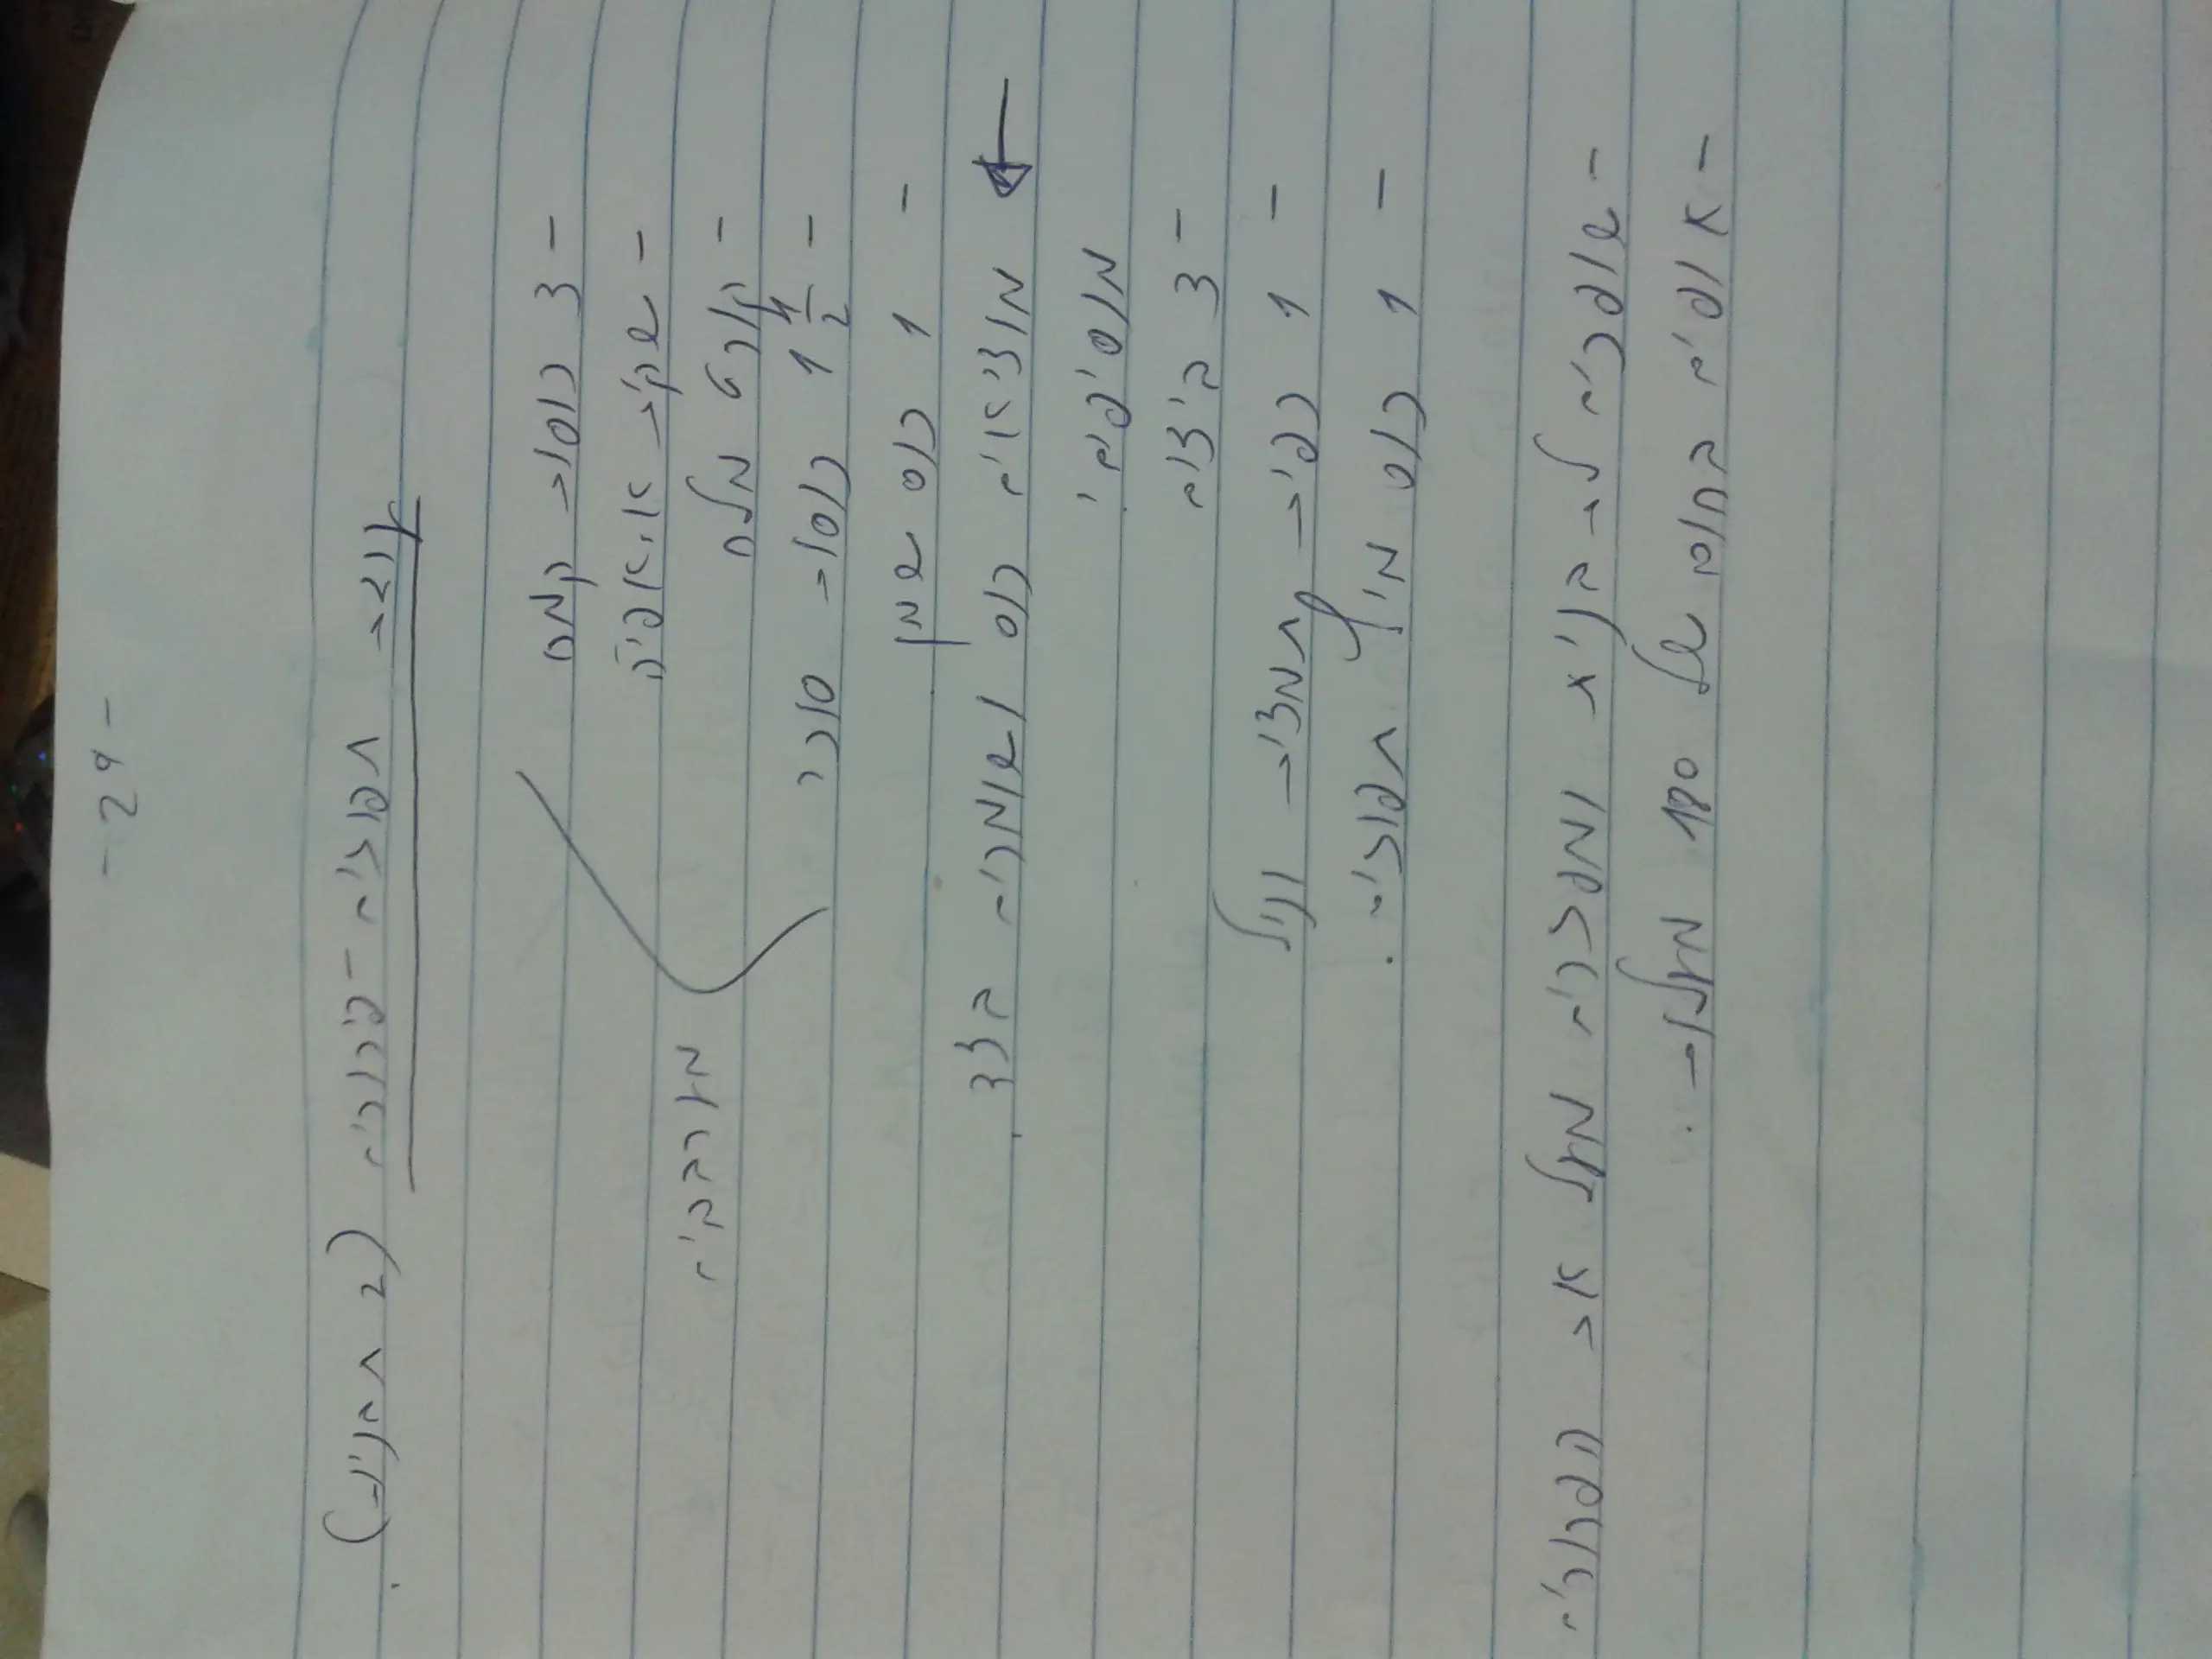 - 29 -
עוגת תפוזים - פירורים (2 תבניות)
- 3 כוסות קמח
- שקית א. אפיה
- קורט מלח
- 1 1/2 כוסות סוכר
מערבבים
- 1 כוס שמן
מוציאים כוס ושומרים בצד
מוסיפים
- 3 ביצים
- 1 כפית תמצית וניל
- 1 כוס מיץ תפוזים.
- שופכים לתבנית ומפזרים מעל את הפירורים
- אופים בחום של 180 מעלות.